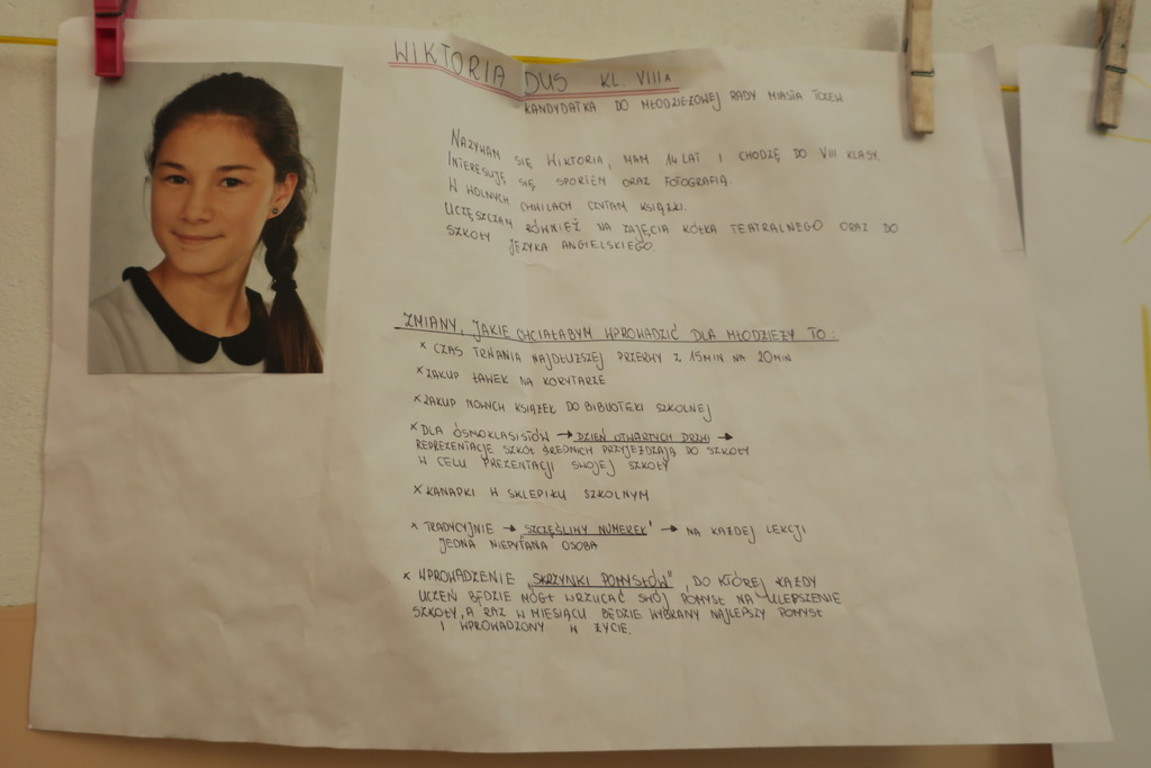 WIKTORIA DUS KL. VIII A
KANDYDATKA DO MŁODZIEŻOWEJ RADY MIASTA TCZEW
NAZYWAM SIĘ WIKTORIA, MAM 14 LAT I CHODZĘ DO VIII KLASY.
INTERESUJĘ SIĘ SPORTEM ORAZ FOTOGRAFIĄ.
W WOLNYCH CHWILACH CZYTAM KSIĄŻKI.
UCZĘSZCZAM RÓWNIEŻ NA ZAJĘCIA KÓŁKA TEATRALNEGO ORAZ DO
SZKOŁY JĘZYKA ANGIELSKIEGO.
ZMIANY, JAKIE CHCIAŁABYM WPROWADZIĆ DLA MŁODZIEŻY TO:
× CZAS TRWANIA NAJDŁUŻSZEJ PRZERWY Z 15MIN NA 20MIN
× ZAKUP ŁAWEK NA KORYTARZE
× ZAKUP NOWYCH KSIĄŻEK DO BIBLIOTEKI SZKOLNEJ
× DLA ÓSMOKLASISTÓW → DZIEŃ OTWARTYCH DRZWI →
REPREZENTACJE SZKÓŁ ŚREDNICH PRZYJEŻDŻAJĄ DO SZKOŁY
W CELU PREZENTACJI SWOJEJ SZKOŁY
× KANAPKI W SKLEPIKU SZKOLNYM
× TRADYCYJNIE → "SZCZĘŚLIWY NUMEREK" → NA KAŻDEJ LEKCJI
JEDNA NIEPYTANA OSOBA
× WPROWADZENIE „SKRZYNKI POMYSŁÓW", DO KTÓREJ KAŻDY
UCZEŃ BĘDZIE MÓGŁ WRZUCAĆ SWÓJ POMYSŁ NA ULEPSZENIE
SZKOŁY, A RAZ W MIESIĄCU BĘDZIE WYBRANY NAJLEPSZY POMYSŁ
I WPROWADZONY W ŻYCIE.